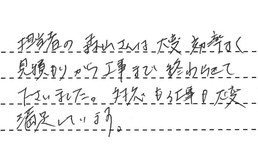 担当者の森山さんは大変効率よく
見積りから工事まで終わらせて
下さいました。対応も工事も大変
満足しています。